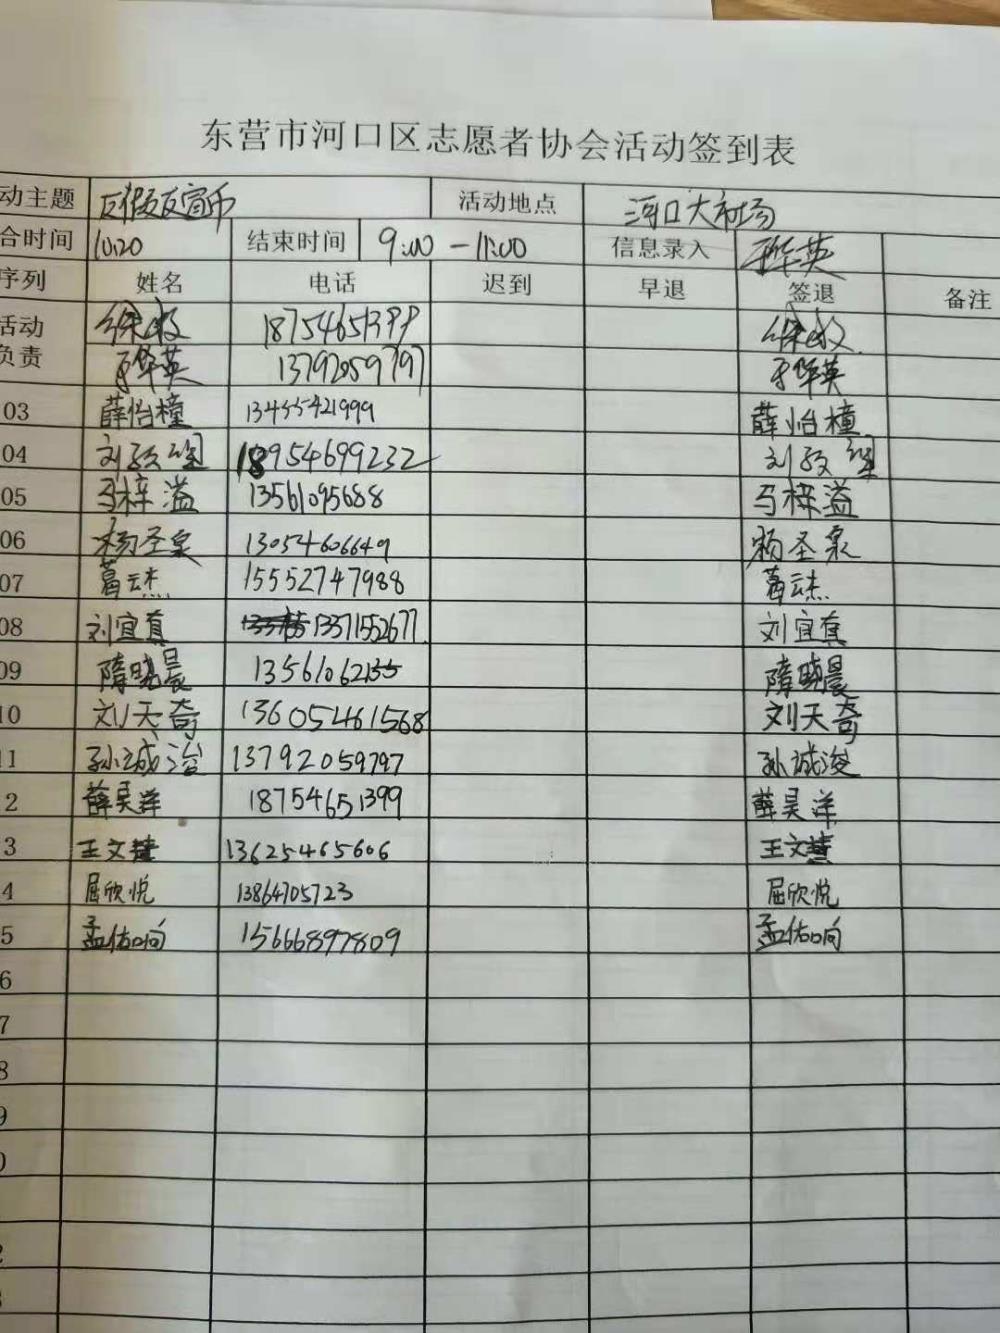 东营市河口区志愿者协会活动签到表
动主题 反假反宣币 活动地点 河口大市场
合时间 10:20 结束时间 9:00-11:00 信息录入 于华英
序列 姓名 电话 迟到 早退 签退 备注
活动 徐 18754651399 徐
负责 于华英 13792059797 于华英
03 薛怡橦 13455421999 薛怡橦
04 刘 18954699232 刘
05 马梓溢 13561095688 马梓溢
06 杨圣泉 13054606649 杨圣泉
07 葛云杰 15552747988 葛云杰
08 刘宜真 13371552677 刘宜真
09 隋晓晨 13561062135 隋晓晨
10 刘天奇 13605461568 刘天奇
11 孙诚浚 13792059797 孙诚浚
2 薛昊洋 18754651399 薛昊洋
3 王文慧 13625465606 王文慧
4 屈欣悦 13864705723 屈欣悦
5 孟佑响 15666897809 孟佑响
6
7
8
9
0
2
3